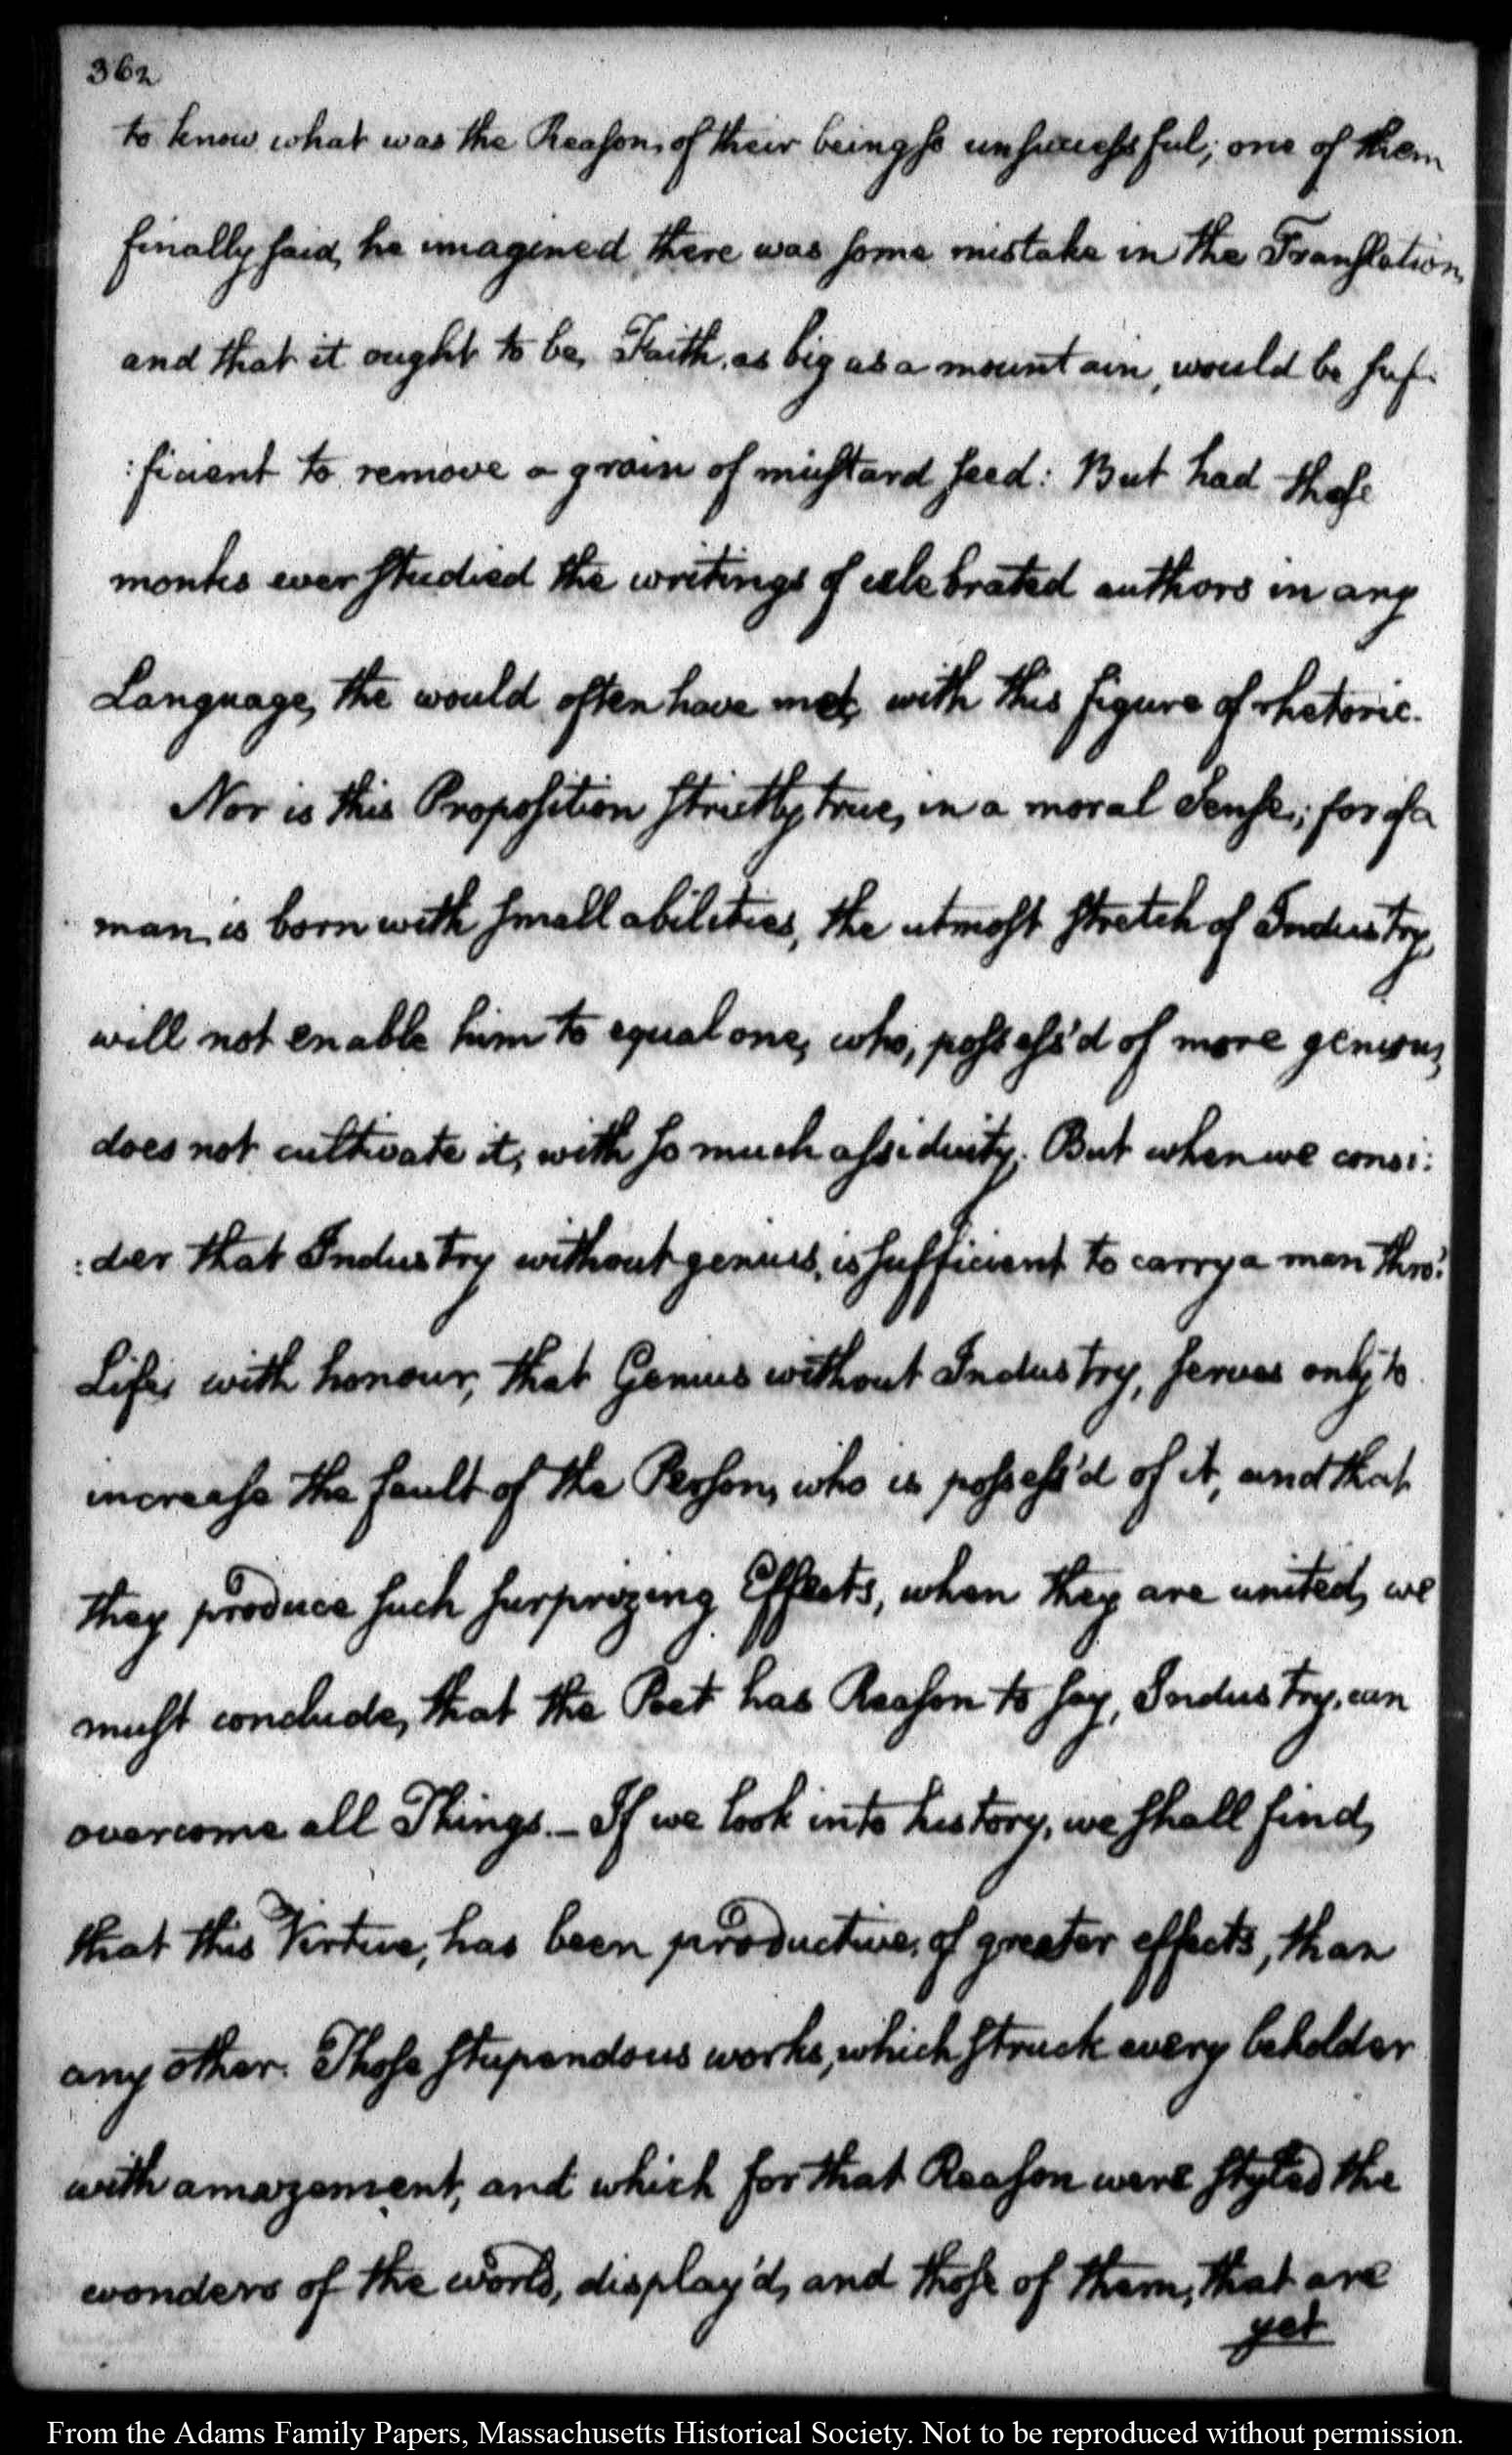 362
to know what was the Reason, of their being so unsuccessful; one of them
finally said, he imagined, there was some mistake in the Translation,
and that it ought to be, Faith, as big as a mountain, would be suf:
:ficient to remove a grain of mustard seed: But had those
monks ever studied the writings of celebrated authors in any
Language, the would often have met, with this figure of rhetoric.
Nor is this Proposition strictly true, in a moral Sense; for if a
man, is born with small abilities, the utmost stretch of Industry,
will not enable him to equal one, who, possess'd of more genius,
does not cultivate it, with so much assiduity. But when we consi:
:der that Industry without genius, is sufficient to carry a man thro'
Life, with honour, that Genius without Industry, serves only to
increase the fault of the Person, who is possess'd of it, and that
they produce such surprizing Effects, when they are united, we
must conclude, that the Poet has Reason to say, Industry, can
overcome all Things.— If we look into history, we shall find,
that this Virtue, has been productive, of greater effects, than
any other. Those stupendous works, which struck every beholder
with amazement, and which for that Reason were styled the
wonders of the world, display'd, and those of them, that are
yet
From the Adams Family Papers, Massachusetts Historical Society. Not to be reproduced without permission.